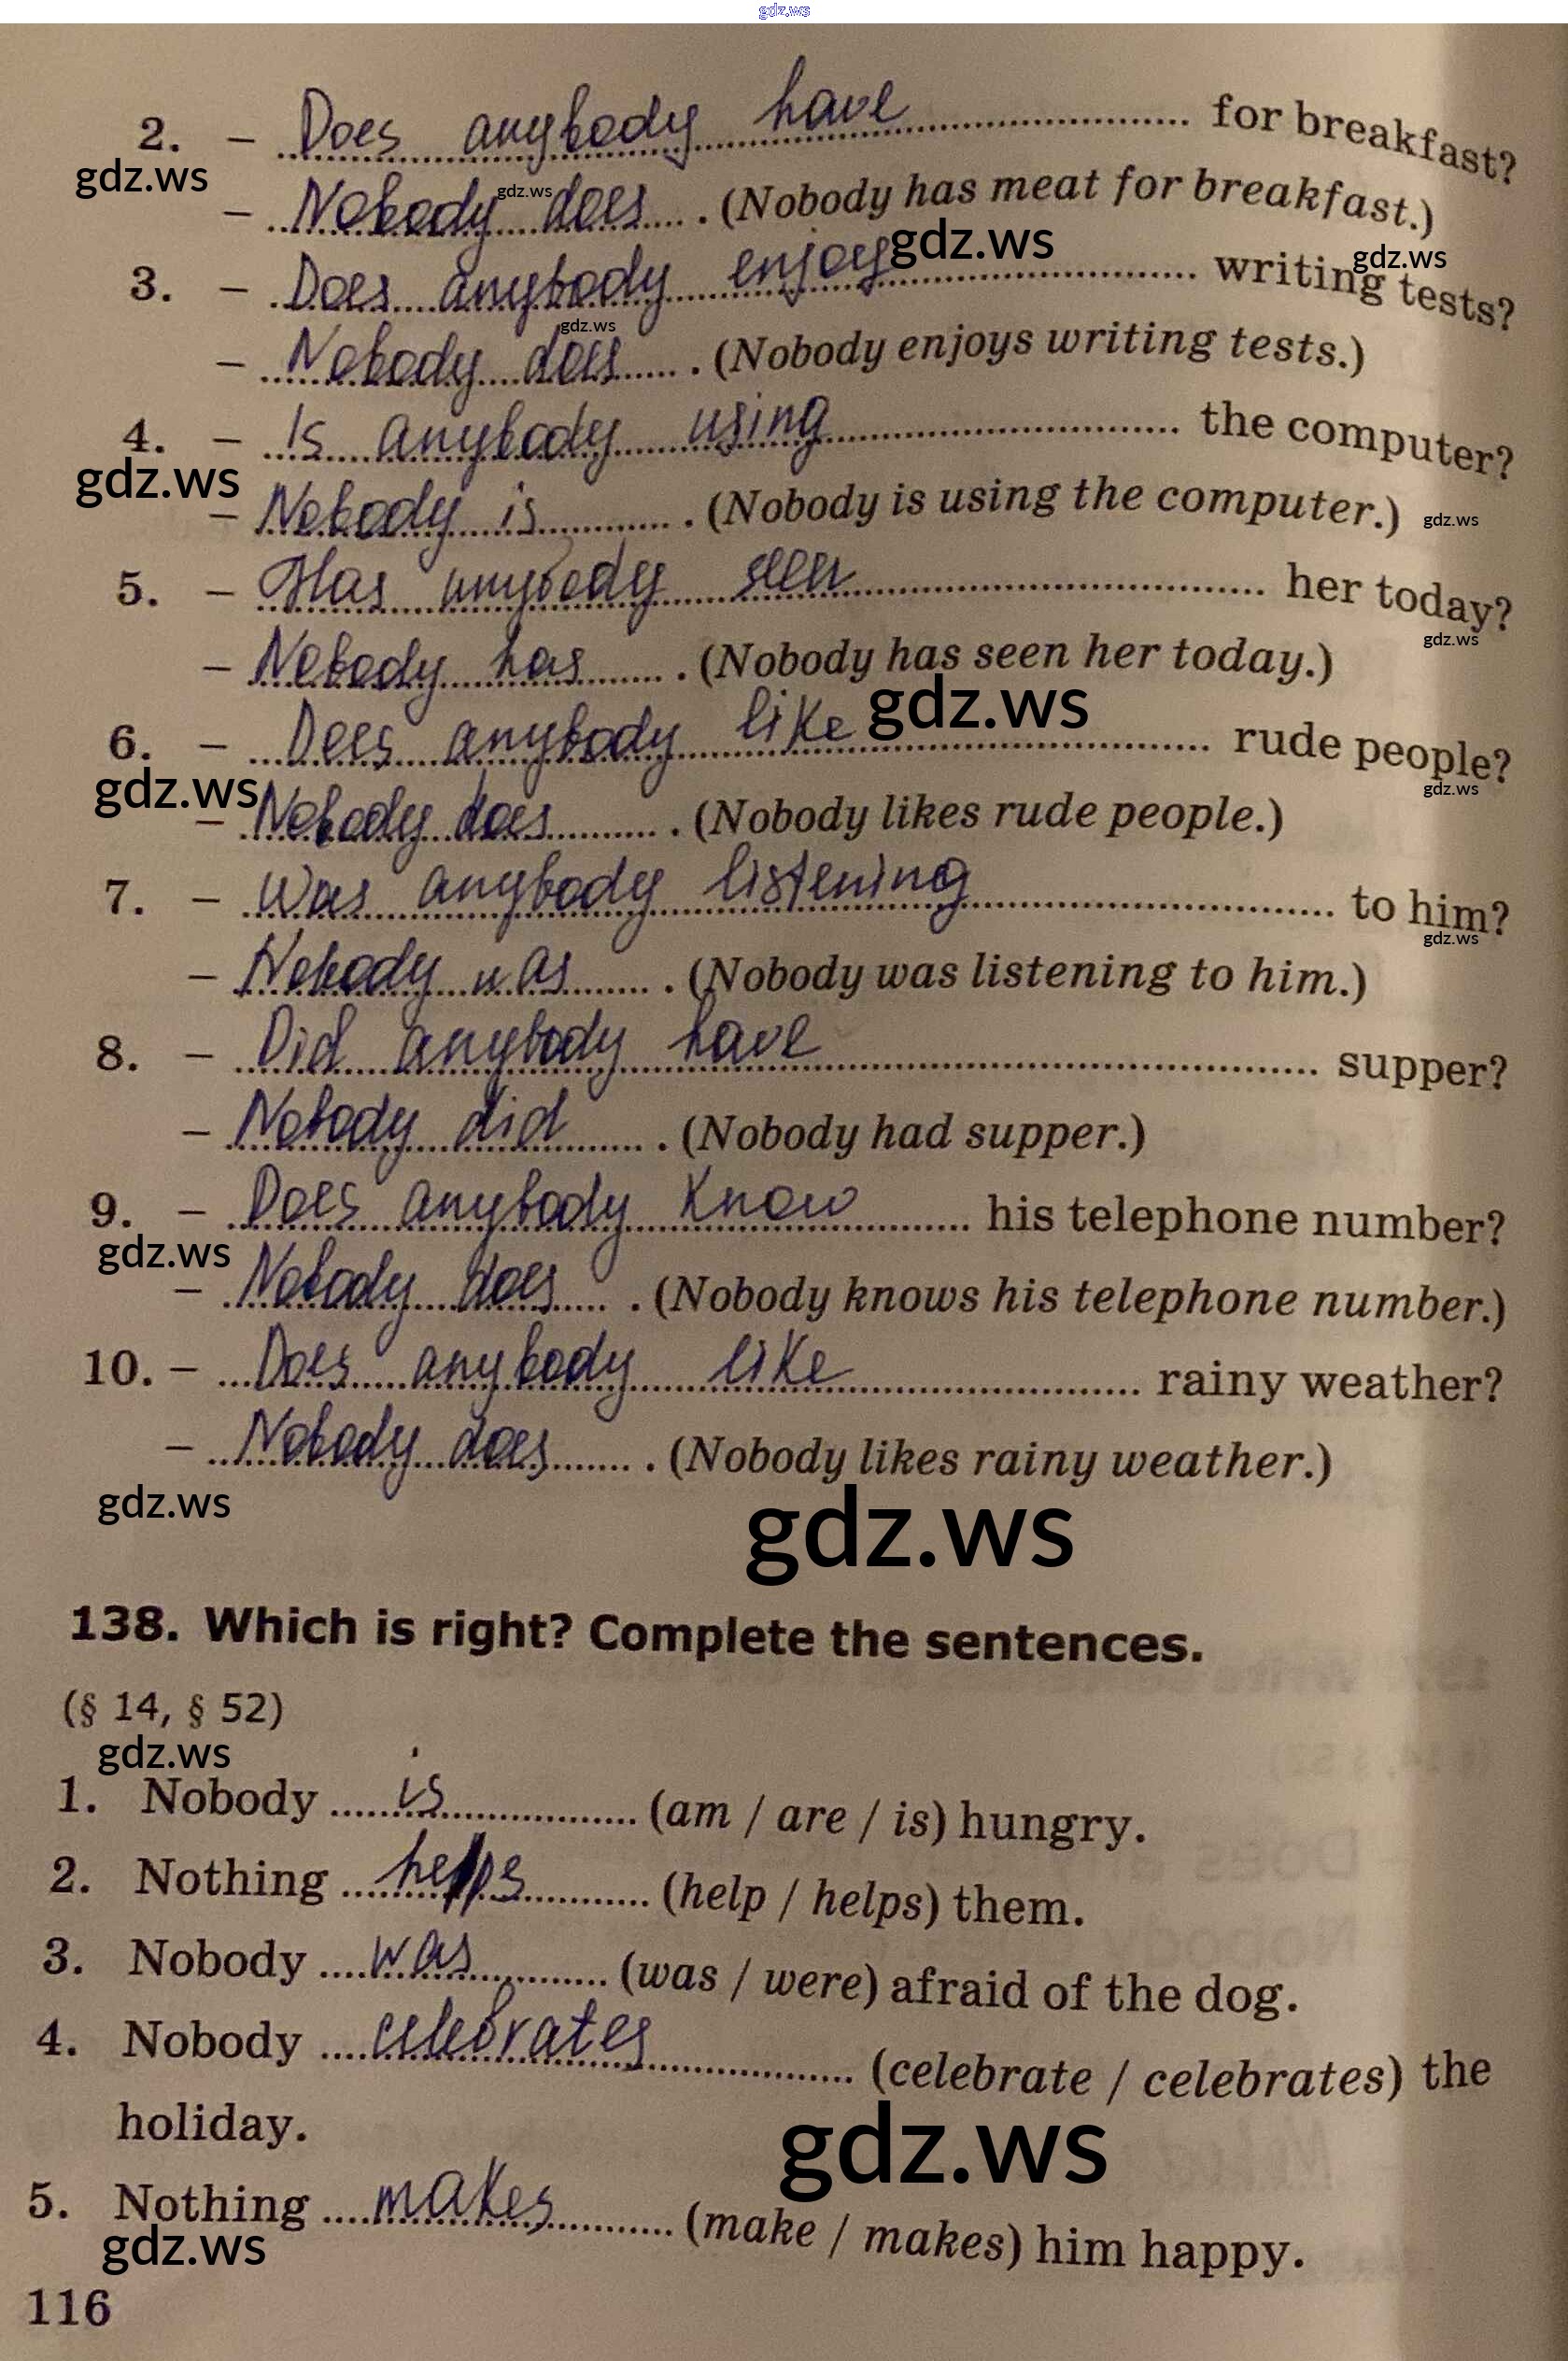 gdz.ws
2. – Does anybody have for breakfast?
gdz.ws
– Nobody does. (Nobody has meat for breakfast.)
gdz.ws
gdz.ws
gdz.ws
3. – Does anybody enjoy writing tests?
gdz.ws
– Nobody does. (Nobody enjoys writing tests.)
4. – Is anybody using the computer?
gdz.ws
– Nobody is. (Nobody is using the computer.)
gdz.ws
5. – Has anybody seen her today?
gdz.ws
– Nobody has. (Nobody has seen her today.)
gdz.ws
6. – Does anybody like rude people?
gdz.ws
gdz.ws
– Nobody does. (Nobody likes rude people.)
7. – Was anybody listening to him?
gdz.ws
– Nobody was. (Nobody was listening to him.)
8. – Did anybody have supper?
– Nobody did. (Nobody had supper.)
9. – Does anybody know his telephone number?
gdz.ws
– Nobody does. (Nobody knows his telephone number.)
10. – Does anybody like rainy weather?
– Nobody does. (Nobody likes rainy weather.)
gdz.ws
gdz.ws
138. Which is right? Complete the sentences.
(§ 14, § 52)
gdz.ws
1. Nobody is (am / are / is) hungry.
2. Nothing helps (help / helps) them.
3. Nobody was (was / were) afraid of the dog.
4. Nobody celebrates (celebrate / celebrates) the
holiday.
gdz.ws
5. Nothing makes (make / makes) him happy.
gdz.ws
116